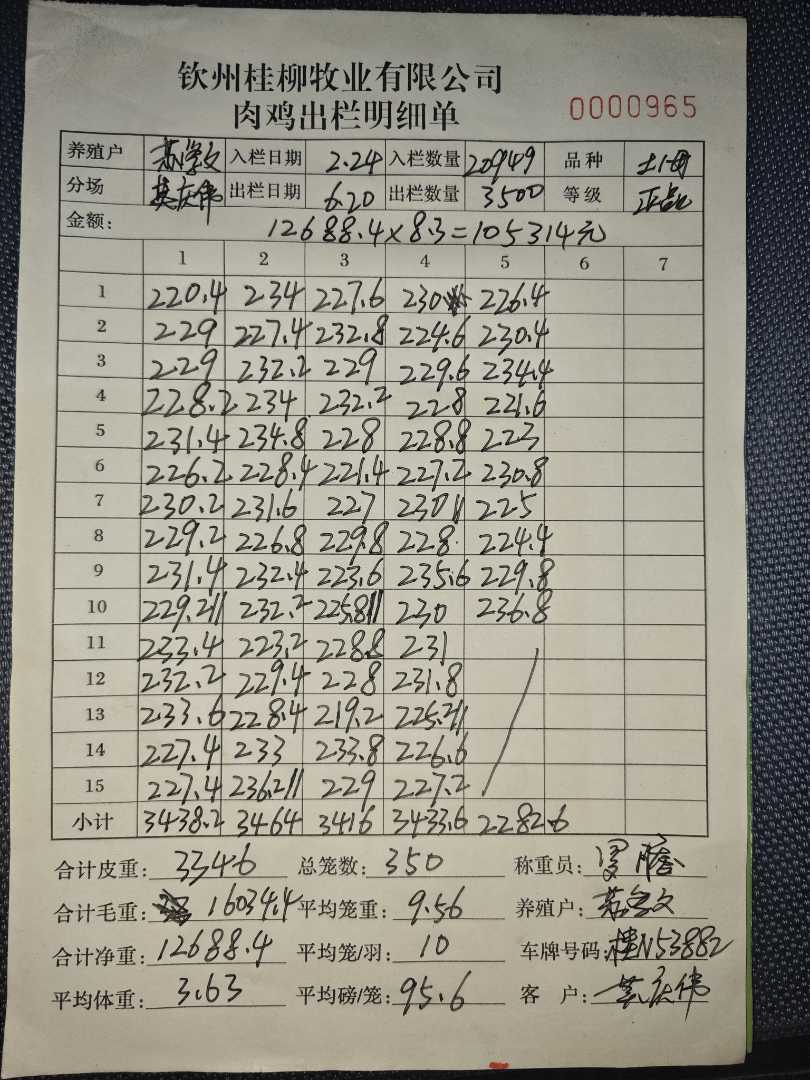 钦州桂柳牧业有限公司
肉鸡出栏明细单 0000965
养殖户 苏学文 入栏日期 2.24 入栏数量 20949 品种 土小母
分场 莫庆伟 出栏日期 6.20 出栏数量 3500 等级 正品
金额: 12688.4×8.3=105314元
1 2 3 4 5 6 7
1 220.4 234 227.6 230 226.4
2 229 227.4 232.8 224.6 230.4
3 229 232.2 229 229.6 234.4
4 228.2 234 232.2 228 221.6
5 231.4 234.8 228 228.8 223
6 226.2 228.4 221.4 227.2 230.8
7 230.2 231.6 227 230 225
8 229.2 226.8 229.8 228 224.4
9 231.4 232.4 223.6 235.6 229.8
10 229.2 232.2 225.8 230 236.8
11 233.4 223.2 228.8 231
12 232.2 229.4 228 231.8
13 233.6 228.4 219.2 225.2
14 227.4 233 233.8 226.6
15 227.4 236.2 229 227.2
小计 3438.2 3464 3416 3433.6 2282.6
合计皮重: 3346 总笼数: 350 称重员:
合计毛重: 16034.4 平均笼重: 9.56 养殖户: 苏学文
合计净重: 12688.4 平均笼/羽: 10 车牌号码: 桂N53882
平均体重: 3.63 平均磅/笼: 95.6 客 户: 莫庆伟